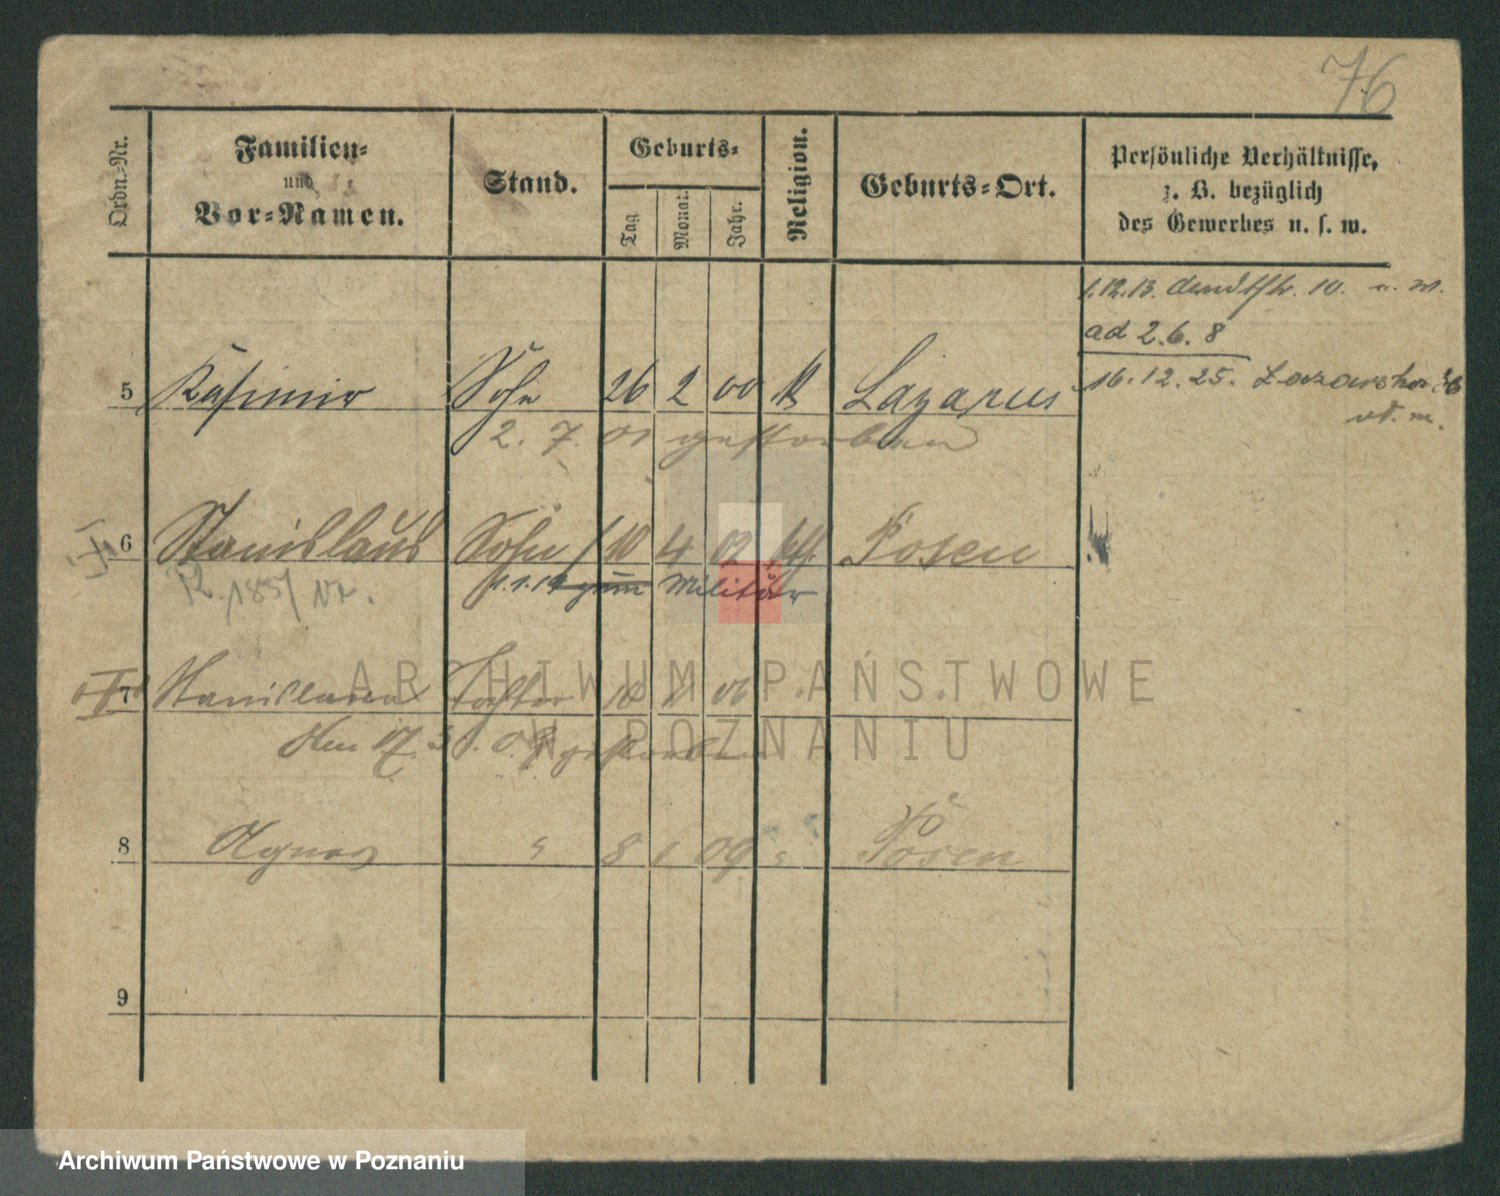 76
Ordn.-Nr.
Familien-
und
Vor-Namen.
Stand.
Geburts-
Tag
Monat.
Jahr.
Religion.
Geburts-Ort.
Persönliche Verhältnisse,
z. B. bezüglich
des Gewerbes u. s. w.
1.12.13. 10.
ad 2.6.8
5 Kasimir Sohn 26 2 00 k Lazarus
16.12.25.
2. 7. 01 gestorben
6 Stanislaus Sohn 10 4 02 kth. Posen
zum Militär
7 Stanislawa Tochter
ARCHIWUM PAŃSTWOWE
W POZNANIU
17. 3. 09 gestorben
8 Agnes 8 1 09 Posen
9
Archiwum Państwowe w Poznaniu